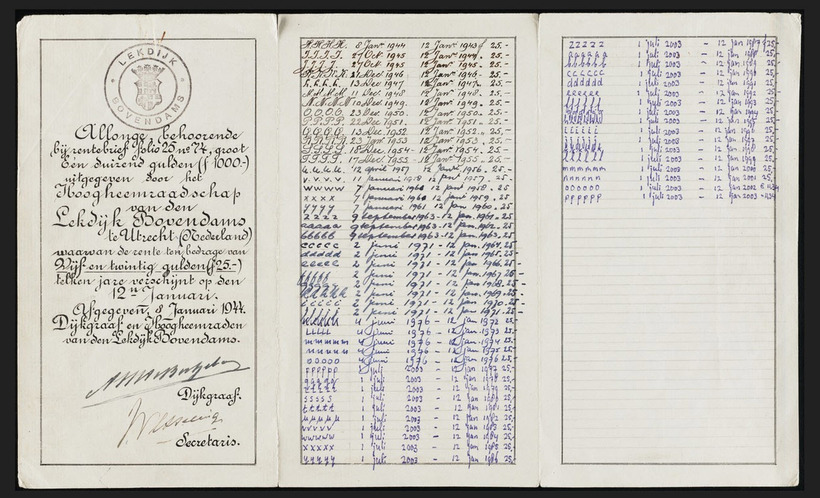 LEKDIJK
BOVENDAMS
Allonge, behoorende
bij rentebrief folio 25 no 74, groot
Een duizend gulden (f 1000.-)
uitgegeven door het
Hoogheemraadschap
van den
Lekdijk Bovendams
te Utrecht (Nederland)
waarvan de rente ten bedrage van
Vijf en twintig gulden (f 25.-)
telken jare verschijnt op den
12en Januari.
Afgegeven, 8 Januari 1944.
Dijkgraaf en Hoogheemraden
van den Lekdijk Bovendams.
Dijkgraaf.
Secretaris.
H.H.H.H. 8 Janr 1944 12 Janr 1943 25.-
I.I.I.I. 27 Oct. 1945 12 Janr 1944. 25.-
27 Oct. 1945 12 Janr 1945. 25.-
Dec 1946 12 Janr 1946. 25.-
13 Dec 1947 12 Janr 1947. 25.-
M.M.M.M. 11 Dec 1948 12 Janr 1948. 25.-
N.N.N.N. 10 Dec 1949. 12 Janr 1949. 25.-
O.O.O.O. 23 Dec 1950. 12 Janr 1950. 25.-
P.P.P.P. 22 Dec 1951. 12 Janr 1951. 25.-
13 Dec. 1952 12 Janr 1952. 25.-
1953 12 Janr 1953. 25.-
18 Dec. 1954 12 Janr 1954. 25.-
17 Dec 1955 12 Janr 1955. 25.-
12 april 1957 12 Janr 1956. 25.-
v.v.v.v. 11 januari 1958 12 jan 1957. 25.-
wwww 7 januari 1960 12 jan 1958. 25-
xxxx 7 januari 1960 12 jan 1959. 25-
yyyy januari 1961 12 jan 1960. 25-
zzzz 9 September 1963 - 12 jan. 1961. 25-
aaaaa 9 September 1963 - 12 jan. 1962. 25-
bbbbb 9 September 1963 - 12 jan. 1963. 25-
ccccc 2 juni 1971 - 12 jan. 1964. 25-
ddddd 2 juni 1971 - 12 jan. 1965. 25-
eeeee 2 juni 1971 - 12 jan. 1966. 25-
2 juni 1971 - 12 jan. 1967. 25-
2 juni 1971 - 12 jan. 1968. 25-
2 juni 1971 - 12 jan. 1969. 25-
iiiii 2 juni 1971 - 12 jan. 1970. 25-
2 juni 1971 - 12 jan. 1971. 25-
4 juni 1976 - 12 jan 1972 25,-
lllll 4 juni 1976 - 12 jan 1973 25,-
mmmmm 4 juni 1976 - 12 jan 1974 25,-
nnnnn 4 juni 1976 - 12 jan 1975 25,-
ooooo 4 juni 1976 - 12 jan 1976 25,-
ppppp 1 juli 2003 - 12 jan 1977 25,-
qqqqq 1 juli 2003 - 12 jan 1978 25,-
rrrrr 1 juli 2003 - 12 jan 1979 25,-
sssss 1 juli 2003 - 12 jan 1980 25,-
ttttt 1 juli 2003 - 12 jan 1981 25,-
uuuuu 1 juli 2003 - 12 jan 1982 25,-
vvvvv 1 juli 2003 - 12 jan 1983 25,-
wwwww 1 juli 2003 - 12 jan 1984 25,-
xxxxx 1 juli 2003 - 12 jan 1985 25,-
yyyyy 1 juli 2003 - 12 jan 1986 25,-
zzzzz 1 juli 2003 - 12 jan 1987 25,-
aaaaaa 1 juli 2003 - 12 jan 1988 25,-
bbbbbb 1 juli 2003 - 12 jan 1989 25,-
cccccc 1 juli 2003 - 12 jan 1990 25,-
dddddd 1 juli 2003 - 12 jan 1991 25,-
eeeeee 1 juli 2003 - 12 jan 1992 25,-
1 juli 2003 - 12 jan 1993 25,-
1 juli 2003 - 12 jan 1994 25,-
1 juli 2003 - 12 jan 1995 25,-
iiiiii 1 juli 2003 - 12 jan 1996 25,-
1 juli 2003 - 12 jan 1997 25,-
1 juli 2003 - 12 jan 1998 25,-
1 juli 2003 - 12 jan 1999 25,-
mmmmmm 1 juli 2003 - 12 jan 2000 25,-
nnnnnn 1 juli 2003 - 12 jan 2001 25,-
oooooo 1 juli 2003 - 12 jan 2002 €
pppppp 1 juli 2003 - 12 jan 2003